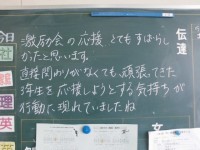 激励会の応援 とてもすばらし
かったと思います。
直接関わりがなくても、頑張ってきた
3年生を応援しようとする気持ちが
行動に現れていましたね
伝達
今日
社
理
英